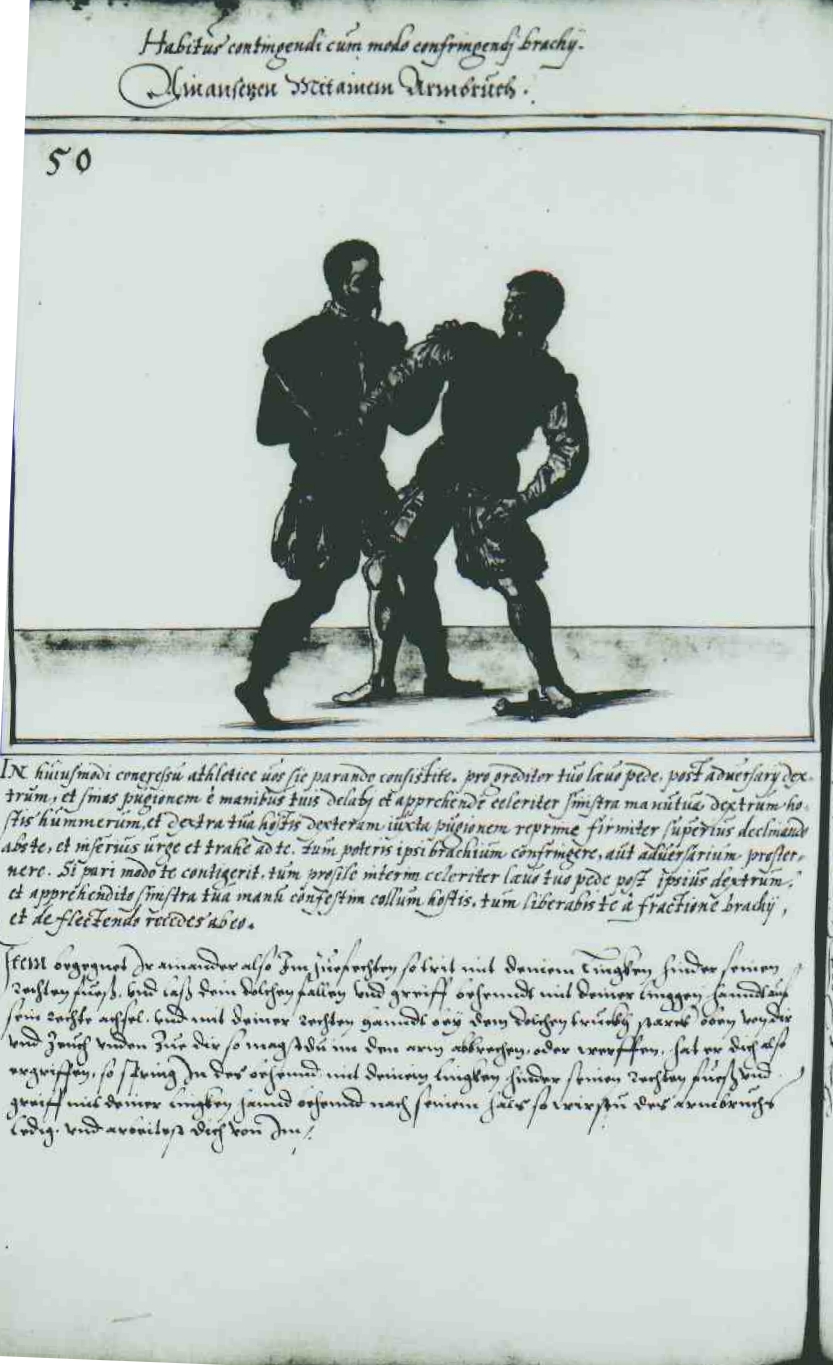 Habitus contingendi cum modo confringendj brachij.
Ain ansetzen Mit ainem Armbruch.
50
IN huiusmodi congressu athletice uos sic parando consistite. progreditor tuo laeuo pede, post aduersarij dex-
trum, et sinas pugionem è manibus tuis delabj et apprehende celeriter sinistra manu tua, dextrum ho-
stis hummerum, et dextra tua hostis dexteram iuxta pugionem reprime firmiter superius declinando
abs te, et inferius urge et trahe ad te. tum poteris ipsi brachium confringere, aut aduersarium proster-
nere. Si pari modo te contigerit, tum prosile interim celeriter laeuo tuo pede post ipsius dextrum,
et apprehendito sinistra tua manu confestim collum hostis, tum liberabis te a fractione brachij,
et deflectendo recedes ab eo.
Item begegnet Ir ainander also Im zuefechten so trit mit deinem Lingken hinder seinen
rechten fuess, vnd lass dein dolchen fallen vnd greiff behemdt mit deiner linggen hanndt auf
sein rechte achsel, vnd mit deiner rechten hanndt bey dem dolchen truckh starck oben von dir
vnd zeuch vnden zue dir so magstdu im den arm abbrechen, oder werffen, hat er dich also
ergriffen, so spring In des behemd mit deinem lingken hinder seinen rechten fuess vnd
greiff mit deiner lingken hannd behemd nach seinem hals so wirstu des armbruchs
ledig, vnd arbeitest dich von Im